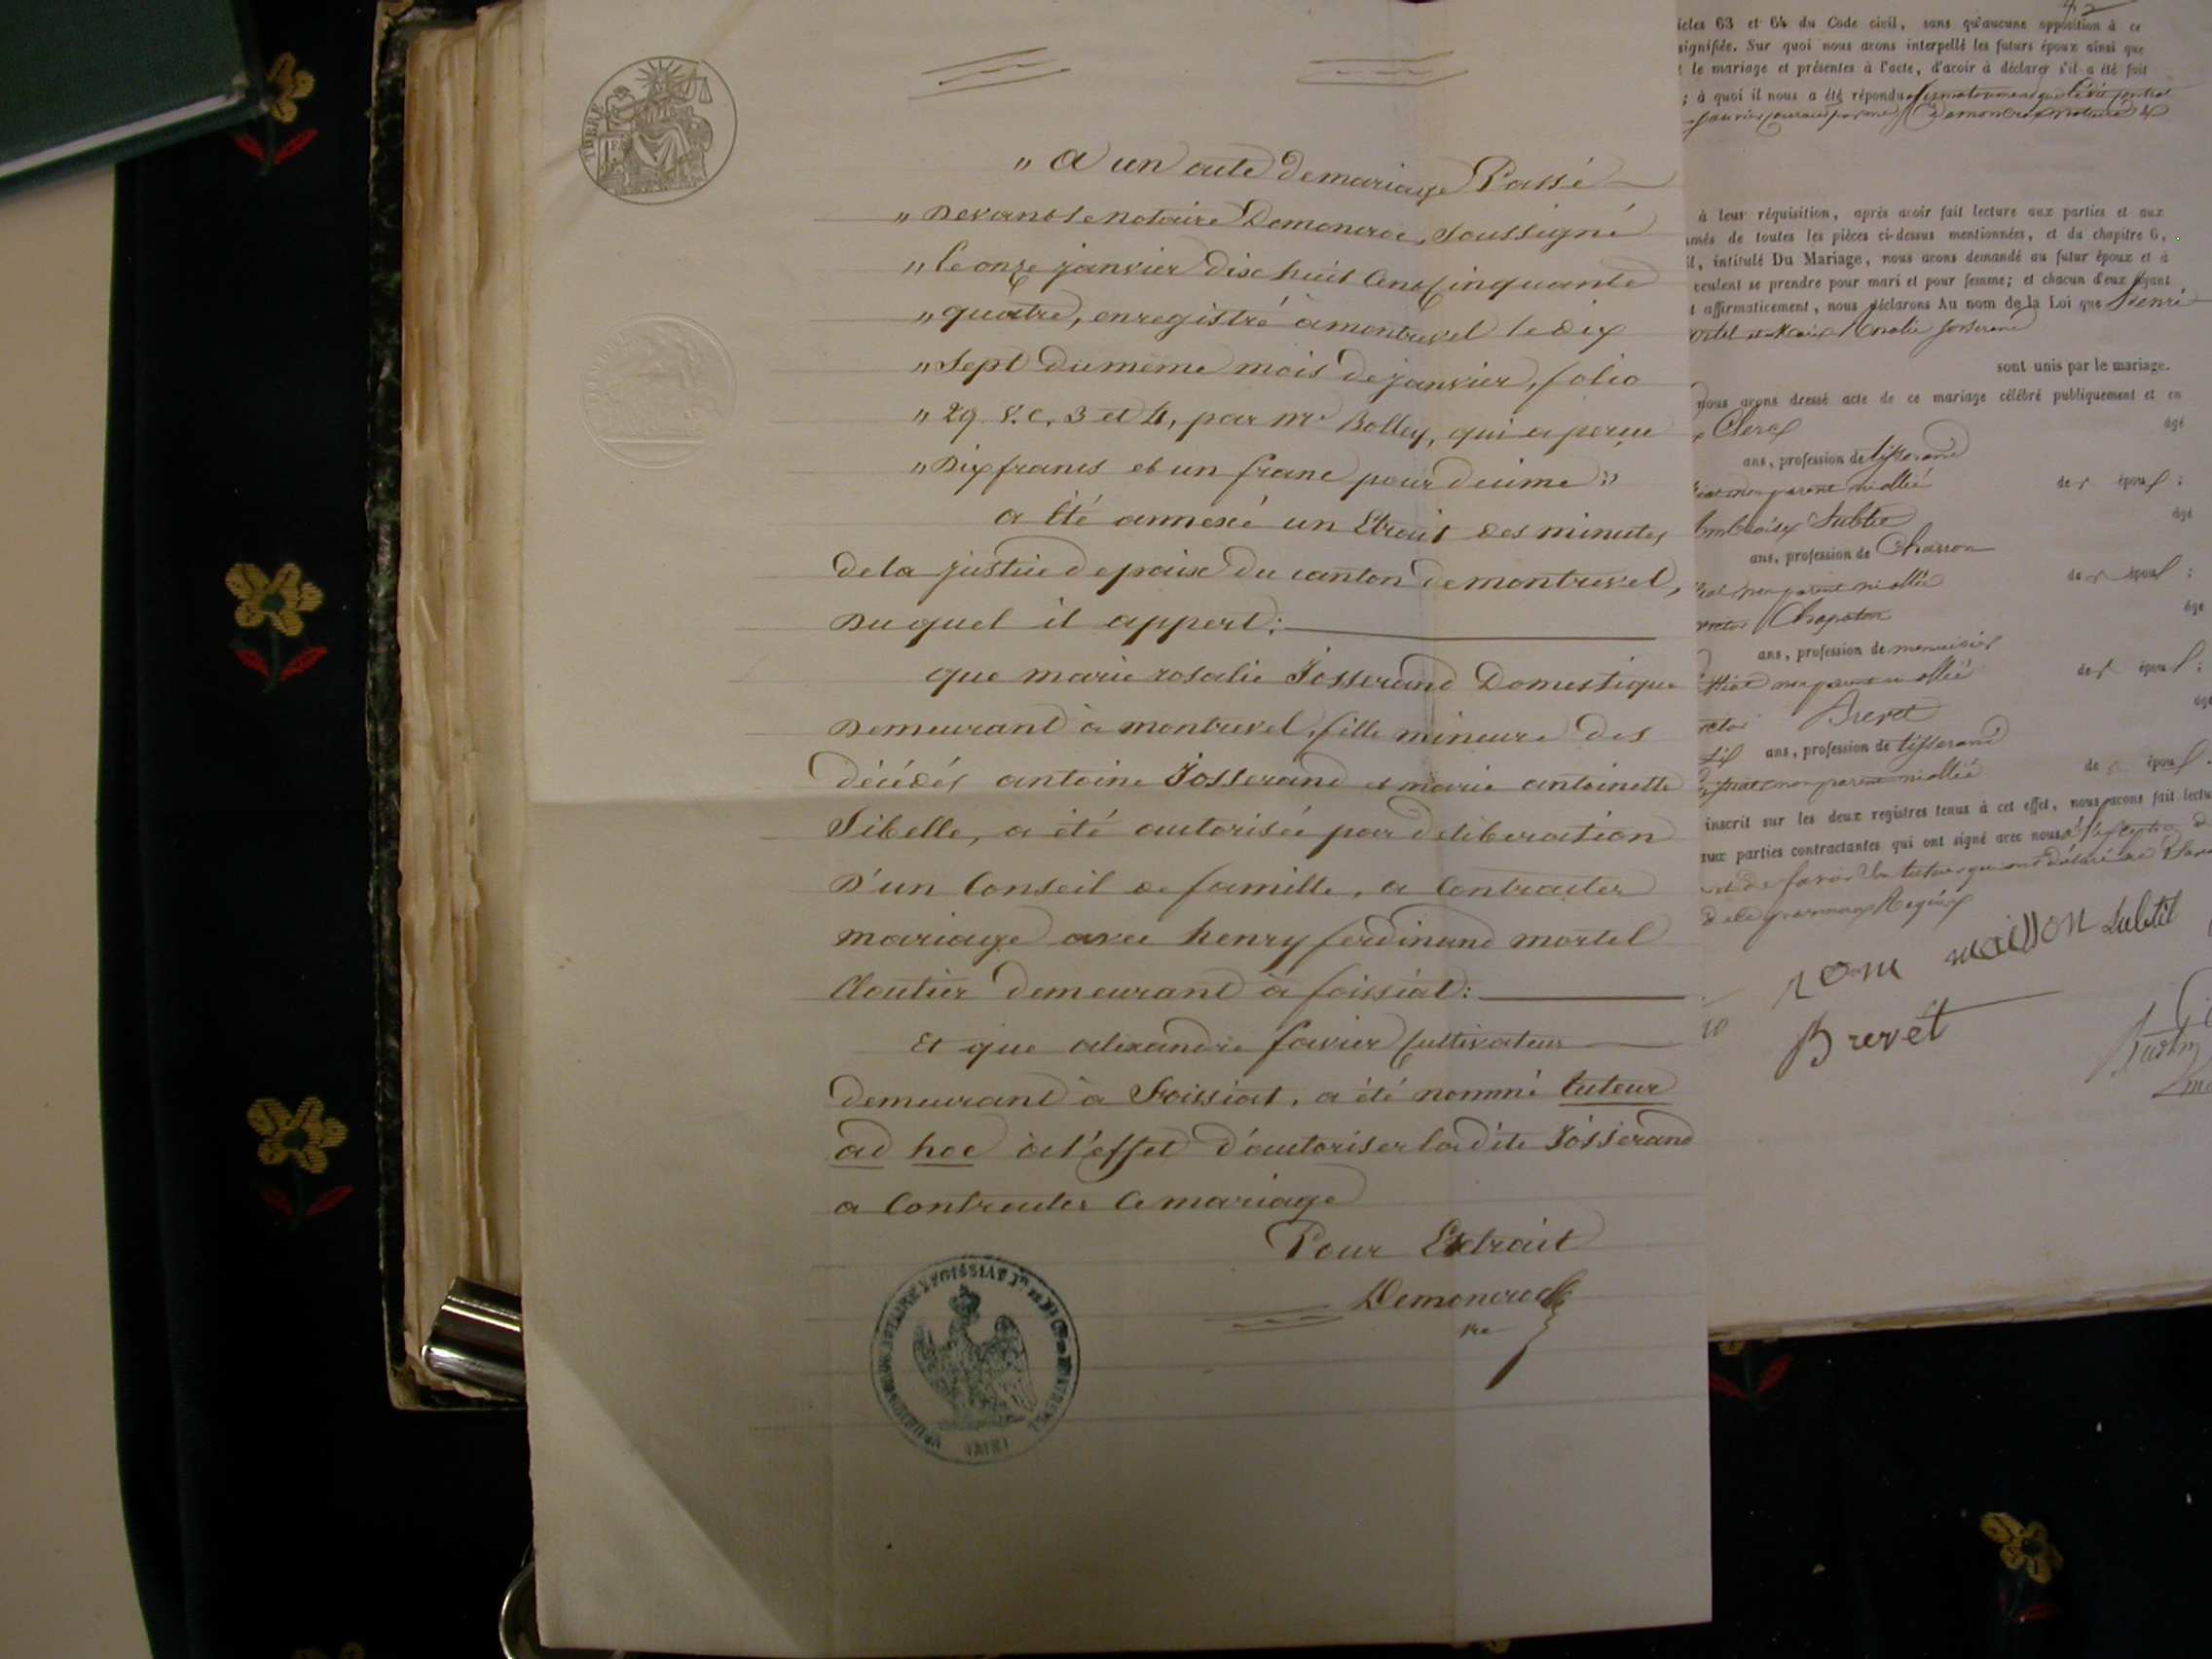 TIMBRE
" A un acte de mariage Passé
" Devant le notaire Demoncroc, soussigné
" le onze janvier dix huit Cent Cinquante
" quatre, enregistré à montrevel le dix
" Sept du même mois de janvier, folio
" 29 v. c. 3 et 4, par mr Bolley, qui a perçu
" Dix francs et un franc pour decime "
a été annexé un Extrait des minutes
de la justice de paix du canton de montrevel,
Du quel il appert:
que marie rosalie Josserand Domestique
Demeurant à montrevel, fille mineure des
décédés antoine Josserand et marie antoinette
Sibelle, a été autorisée par deliberation
D'un Conseil de famille, a Contracter
mariage avec henry ferdinand mortel
Cloutier demeurant à foissiat:
Et que alexandre favier Cultivateur
demeurant à Foissiat, a été nommé tuteur
ad hoc à l'effet d'autoriser ladite Josserand
a Contracter Ce mariage
Pour Extrait
Demoncroc
icles 63 et 64 du Code civil, sans qu'aucune opposition à ce
signifiée. Sur quoi nous avons interpellé les futurs époux ainsi que
le mariage et présentes à l'acte, d'avoir à déclarer s'il a été fait
; à quoi il nous a été répondu
à leur réquisition, après avoir fait lecture aux parties et aux
més de toutes les pièces ci-dessus mentionnées, et du chapitre 6,
il, intitulé Du Mariage, nous avons demandé au futur époux et à
veulent se prendre pour mari et pour femme; et chacun d'eux ayant
t affirmativement, nous déclarons Au nom de la Loi que Henri
ortel et Marie Rosalie Josserand
sont unis par le mariage.
nous avons dressé acte de ce mariage célébré publiquement et en
Clerc
âgé
ans, profession de tisserand
non parent ni allié
de époux ;
âgé
ans, profession de Charron
non parent ni allié
de époux ;
Chapoton
âgé
ans, profession de menuisier
non parent ni allié
de époux ;
Brevet
ans, profession de tisserand
non parent ni allié
de époux
inscrit sur les deux registres tenus à cet effet, nous avons fait lectu
aux parties contractantes qui ont signé avec nous
maisson Subtil
Brevet